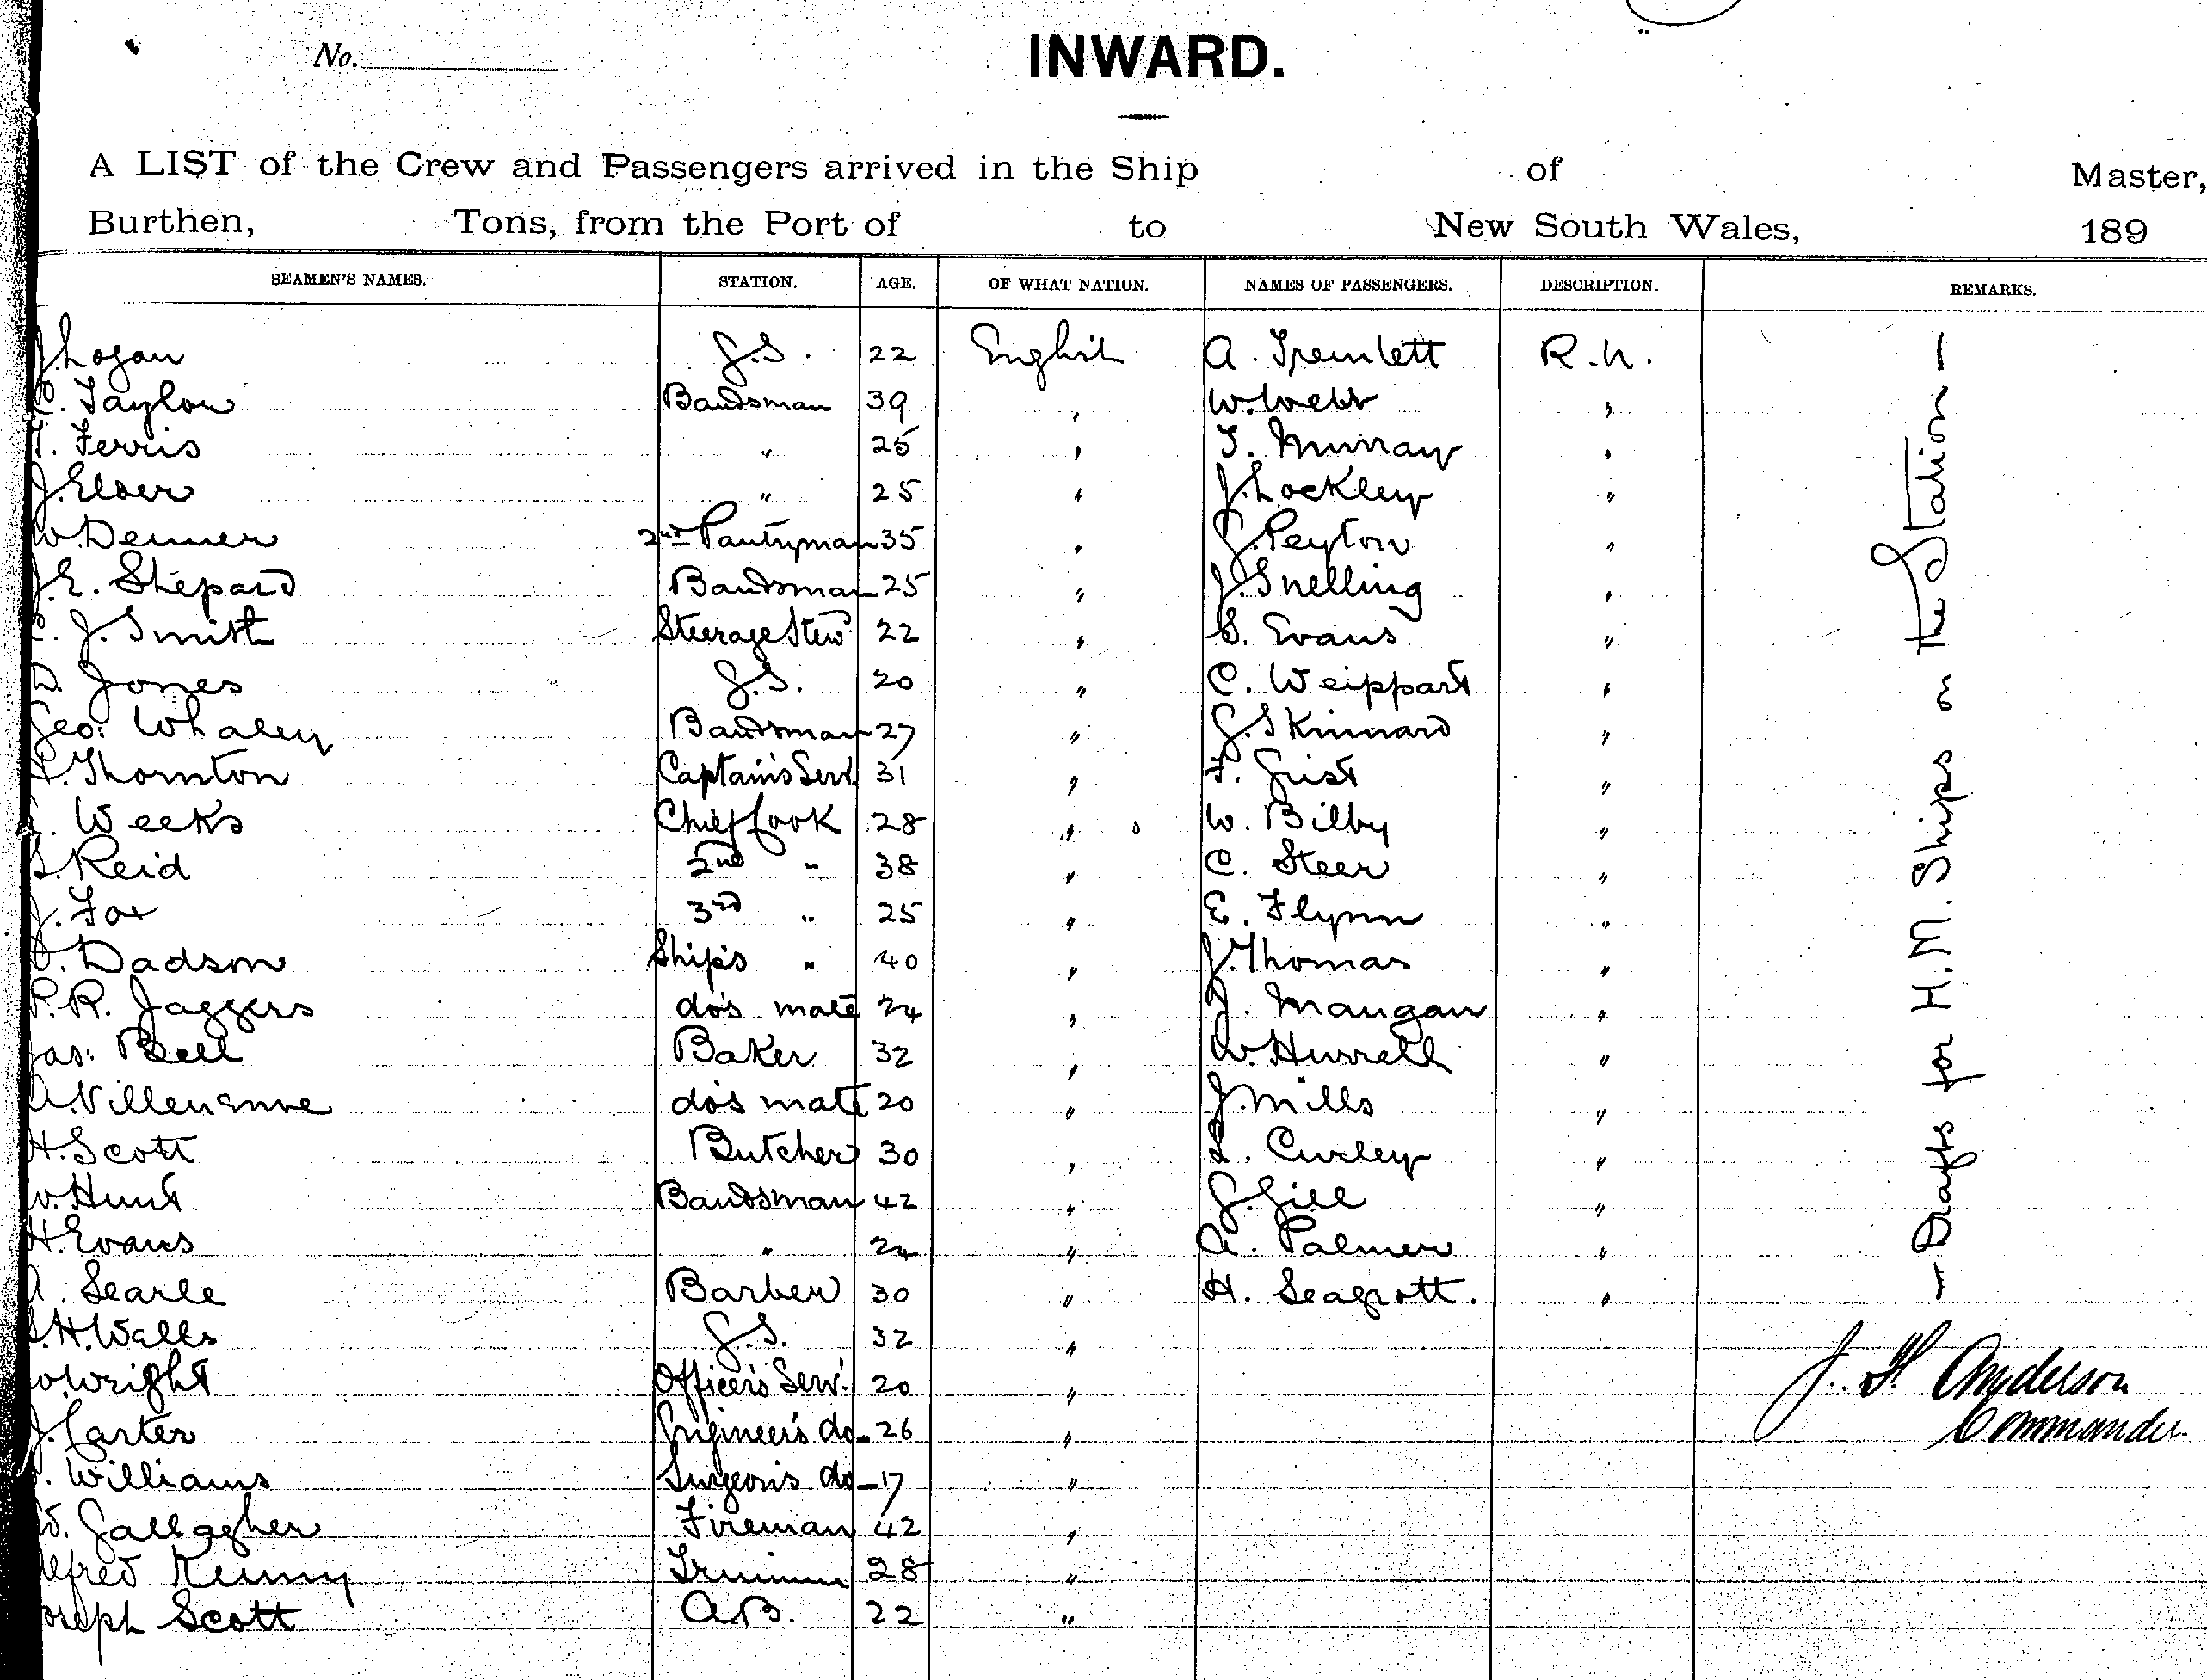 No.
INWARD.
A LIST of the Crew and Passengers arrived in the Ship of Master,
Burthen, Tons, from the Port of to New South Wales, 189
SEAMEN'S NAMES. STATION. AGE. OF WHAT NATION. NAMES OF PASSENGERS. DESCRIPTION. REMARKS.
J. Logan G.S. 22 English A. Tremlett R.N.
C. Taylor Bandsman 39 " W. Webb "
T. Ferris " 25 " T. Murray "
J. Elder " 25 " J. Lockley "
W. Denner 2nd Pantryman 35 " G. Peyton "
J. E. Shepard Bandsman 25 " J. Snelling "
C. J. Smith Steerage Stewd 22 " S. Evans "
D. Jones G.S. 20 " C. Weippart "
Geo: Whaley Bandsman 27 " G. Skinnard "
Thornton Captain's Servt 31 " F. Grist "
Weeks Chief Cook 28 " W. Bilby "
S. Reid 2nd " 38 " C. Steer "
J. Fox 3rd " 25 " E. Flynn "
Dadson Ship's " 40 " J. Thomas "
P. R. Jaggers do's mate 24 " J. Mangan "
Jas: Bell Baker 32 " W. Hurrell "
A. Villeneuve do's mate 20 " J. Mills "
H. Scott Butcher 30 " L. Curley "
W. Hunt Bandsman 42 " G. Gill "
H. Evans " 24 " A. Palmer "
A. Searle Barber 30 " H. Seagrott. "
H. Wells G.S. 32 "
W. Wright Officer's Serv. 20 "
J. Carter Engineer's do. 26 "
Williams Surgeon's do 17 "
W. Gallagher Fireman 42 "
Alfred Kenny Trimmer 28 "
Joseph Scott A.B. 22 "
— Drafts for H.M. Ships on the Station —
J. F. Anderson
Commander